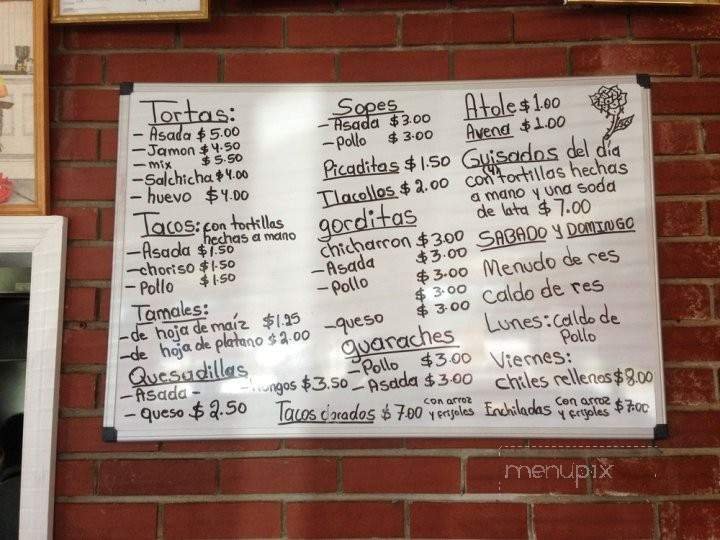 Tortas:
- Asada $5.00
- Jamon $4.50
- mix $5.50
- Salchicha $4.00
- huevo $4.00
Tacos: con tortillas
hechas a mano
- Asada $1.50
- choriso $1.50
- Pollo $1.50
Tamales:
- de hoja de maíz $1.25
- de hoja de platano $2.00
Quesadillas
- Asada -
- Hongos $3.50
- queso $2.50
Sopes
- Asada $3.00
- Pollo $3.00
Picaditas $1.50
Tlacollos $2.00
gorditas
chicharron $3.00
- Asada $3.00
- Pollo $3.00
$3.00
- queso $3.00
guaraches
- Pollo $3.00
- Asada $3.00
Tacos dorados $7.00 con arroz
y frijoles
Atole $1.00
Avena $1.00
Guisados del día
con tortillas hechas
a mano y una soda
de lata $7.00
SABADO Y DOMINGO
Menudo de res
Caldo de res
Lunes: Caldo de
Pollo
Viernes:
chiles rellenos $8.00
Enchiladas con arroz
y frijoles $7.00
menupix